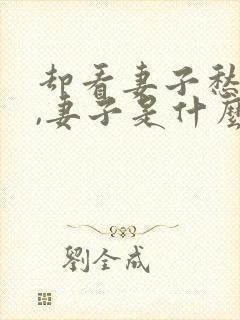 却看妻子愁
,妻子是什麼
劉全成